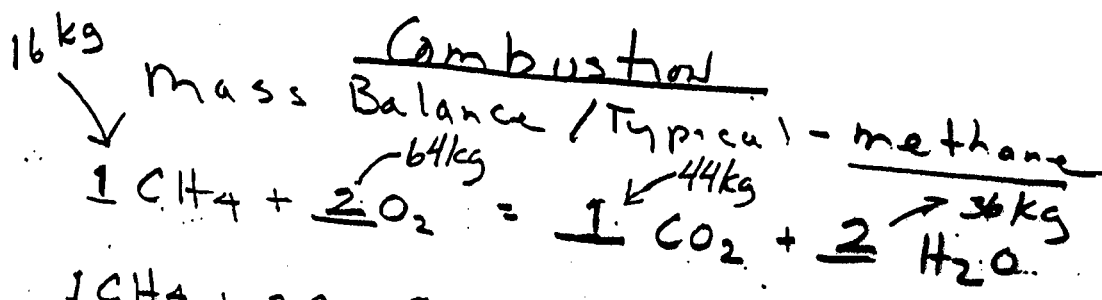 16 kg
Combustion
Mass Balance / Typical - methane
64kg
44kg
36 kg
1 CH4 + 2 O2 = 1 CO2 + 2 H2O
1 CH4 +